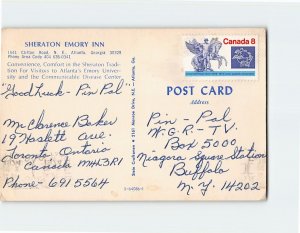 SHERATON EMORY INN
1641 Clifton Road, N. E. Atlanta, Georgia 30329
Phone Area Code 404 636-0341
Convenience, Comfort in the Sheraton Tradi-
tion For Visitors to Atlanta's Emory Univer-
sity and the Communicable Disease Center.
Canada 8
POST CARD
Address
"Good Luck - Pin Pal
Mr Clarence Baker
19 Haslett Ave.
Toronto Ontario
Canada M4L3R1
Phone - 691 5564
Pin - Pal
W.G.R. - T.V.
Box 5000
Niagara Square Station
Buffalo
N.Y. 14202